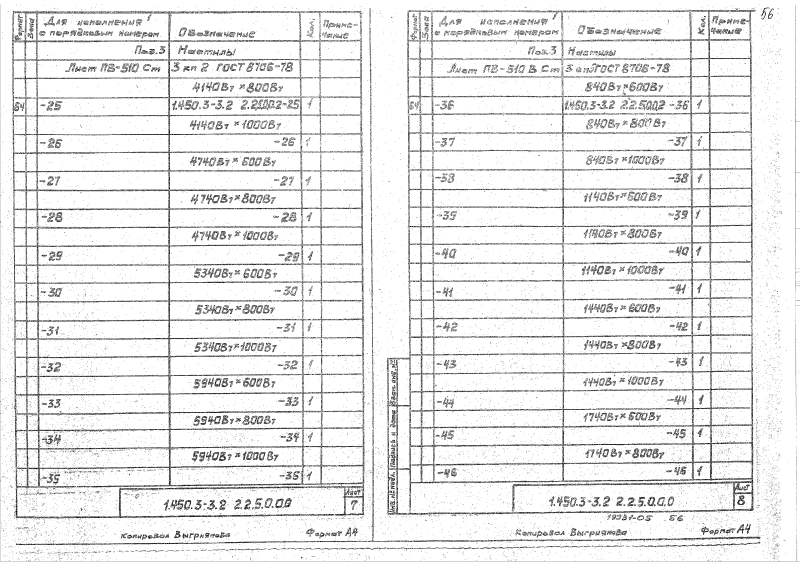 56
Формат
Зона
Для исполнения
с порядковым номером
Обозначение
Кол.
Приме-
чание
Поз.3 Настилы
Лист ПВ-510 Ст 3 кп 2 ГОСТ 8706-78
4140Вт×800Вт
Б4 -25 1.450.3-3.2 2.2.5.0.0.2-25 1
4140Вт×1000Вт
-26 -26 1
4740Вт×600Вт
-27 -27 1
4740Вт×800Вт
-28 -28 1
4740Вт×1000Вт
-29 -29 1
5340Вт×600Вт
-30 -30 1
5340Вт×800Вт
-31 -31 1
5340Вт×1000Вт
-32 -32 1
5940Вт×600Вт
-33 -33 1
5940Вт×800Вт
-34 -34 1
5940Вт×1000Вт
-35 -35 1
1.450.3-3.2 2.2.5.0.0.0
Лист
7
Копировал Выгриянова Формат А4
Формат
Зона
Для исполнения
с порядковым номером
Обозначение
Кол.
Приме-
чание
Поз.3 Настилы
Лист ПВ-510 В Ст 3 кп ГОСТ 8706-78
840Вт×600Вт
Б4 -36 1.450.3-3.2 2.2.5.0.0.2 -36 1
840Вт×800Вт
-37 -37 1
840Вт×1000Вт
-38 -38 1
1140Вт×600Вт
-39 -39 1
1140Вт×800Вт
-40 -40 1
1140Вт×1000Вт
-41 -41 1
1440Вт×600Вт
-42 -42 1
1440Вт×800Вт
-43 -43 1
1440Вт×1000Вт
-44 -44 1
1740Вт×600Вт
-45 -45 1
1740Вт×800Вт
-46 -46 1
Инв. № подл. Подпись и дата Взам. инв. №
1.450.3-3.2 2.2.5.0.0.0
Лист
8
56
Копировал Выгриянова Формат А4